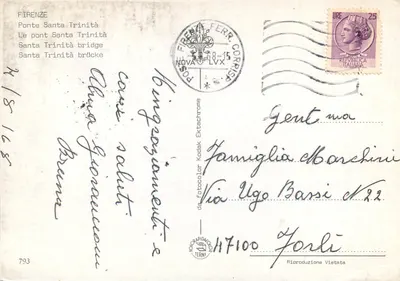 FIRENZE
Ponte Santa Trinità
Le pont Santa Trinità
Santa Trinità bridge
Santa Trinità brücke
4/8/68
Ringraziamenti e
cari saluti
Bruna
POS. FIRENZE FERR. CORRISP.
NOVA LVX
25
Gent.ma
Famiglia Marchini
Via Ugo Bassi N 22
47100 Forlì
da Fotocolor Kodak Ektachrome
Riproduzione Vietata
793